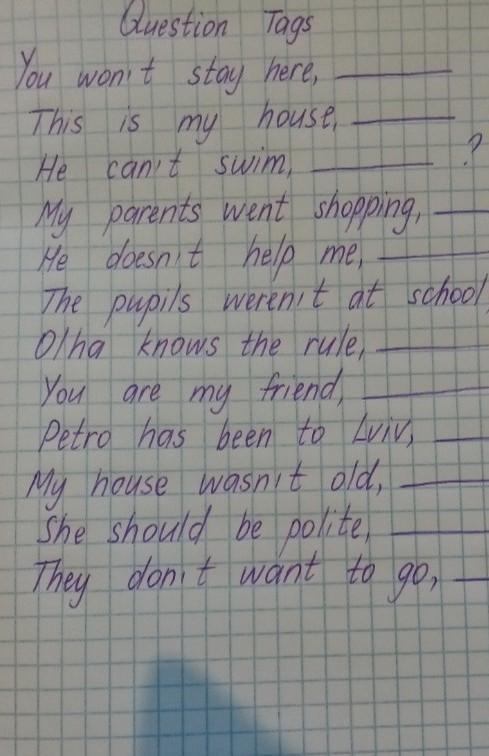 Question Tags
You won't stay here, ________
This is my house, ________
He can't swim, ________ ?
My parents went shopping, ____
He doesn't help me, ________
The pupils weren't at school,
Olha knows the rule, ________
You are my friend, ________
Petro has been to Lviv, ____
My house wasn't old, ________
She should be polite, ________
They don't want to go, ___